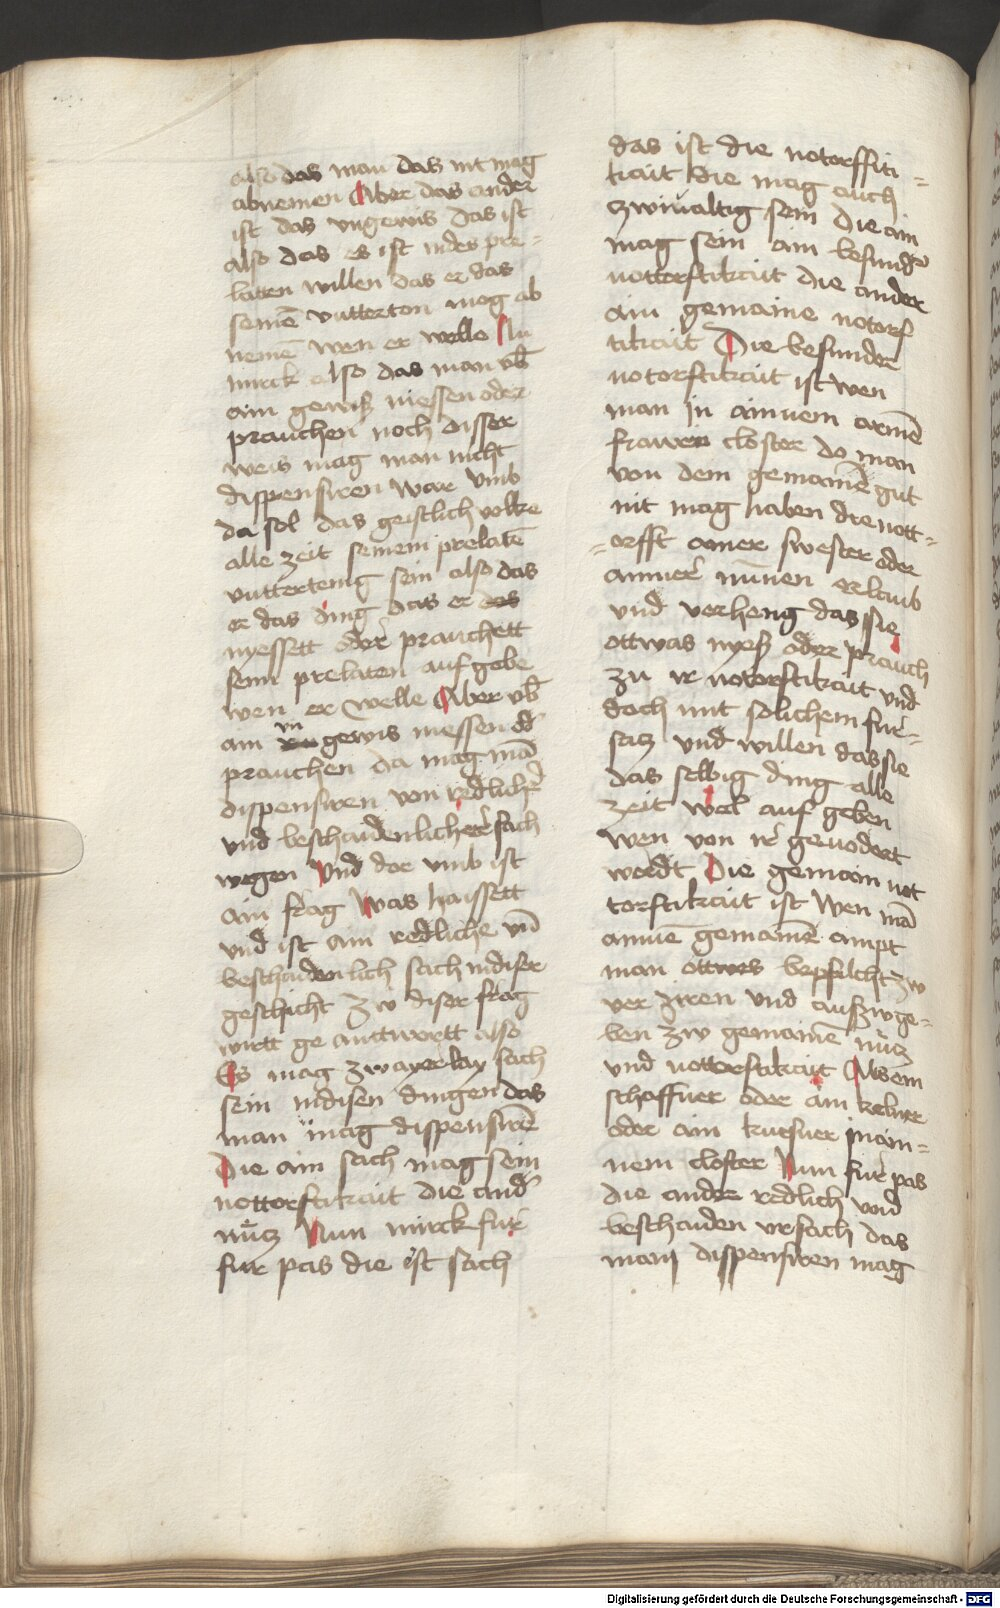 also das man das nit mag
abnemen Aber das ander
ist das vngewis das ist
also das es ist in des pre=
laten willen das er das
seinē vntterton mog ab
nemē wen er welle Nu
mirck also das man vb̄
ain gewiß niessen oder
prauchen noch disser
weis mag man nicht
dispensiren war vmb
da sol das geistlich volke
alle zeit seinem prelatē
vnttertenig sein also das
er das ding das er des
nyessett oder prauchett
seim prelaten auf gebe
wen er welle Aber vb̄
ain vngewis niessen od̄
prauchen da mag mā
dispensiren von redlicher
vnd beschaidenlicher sach
wegen Vnd dor vmb ist
ain frag Was haissett
vnd ist ain redliche vn̄
beschaidenlich sach in diser
geschicht zw diser frag
wirtt ge anttwortt also
Es mag zwayerlay sach
sein in disen dingen das
man mag dispensirē
Die ain sach mag sein
nottorftikait die and̄
nücz Nun mirck für
fur pas die ist sach
das ist die notorffti=
kait die mag auch
zwiualtig sein Die ain
mag sein ain besunder
nottorftikait die ander
ain gemaine notorf
tikait Die besunder
notorftikait ist wen
man in ainnem armē
frawen closter do man
von dem gemainē gut
nit mag haben die nott=
=orfft ainer swester oder
ainner nunnen erlaub
vnd verheng das sie
ottwas nyeß oder prauch
zu ir notorftikait vnd
doch mit solichem fur=
satz vnd willen das sie
das selbig ding alle
zeit wel auf geben
wen von ir geuodert
werdt Die gemain not
torftikait ist Wen mā
ainnē gemainē ampt
man ottwes bepfilcht zw
ver ziren vnd auszwge=
ben zw gemainē nücz
vnd nottorftikait Als ein
schaffner oder ain kelner
oder ain kursner in ain=
nem closter Nun für pas
die ander redlich vnd
beschaiden vrsach das
man dispensiren mag
Digitalisierung gefördert durch die Deutsche Forschungsgemeinschaft - DFG